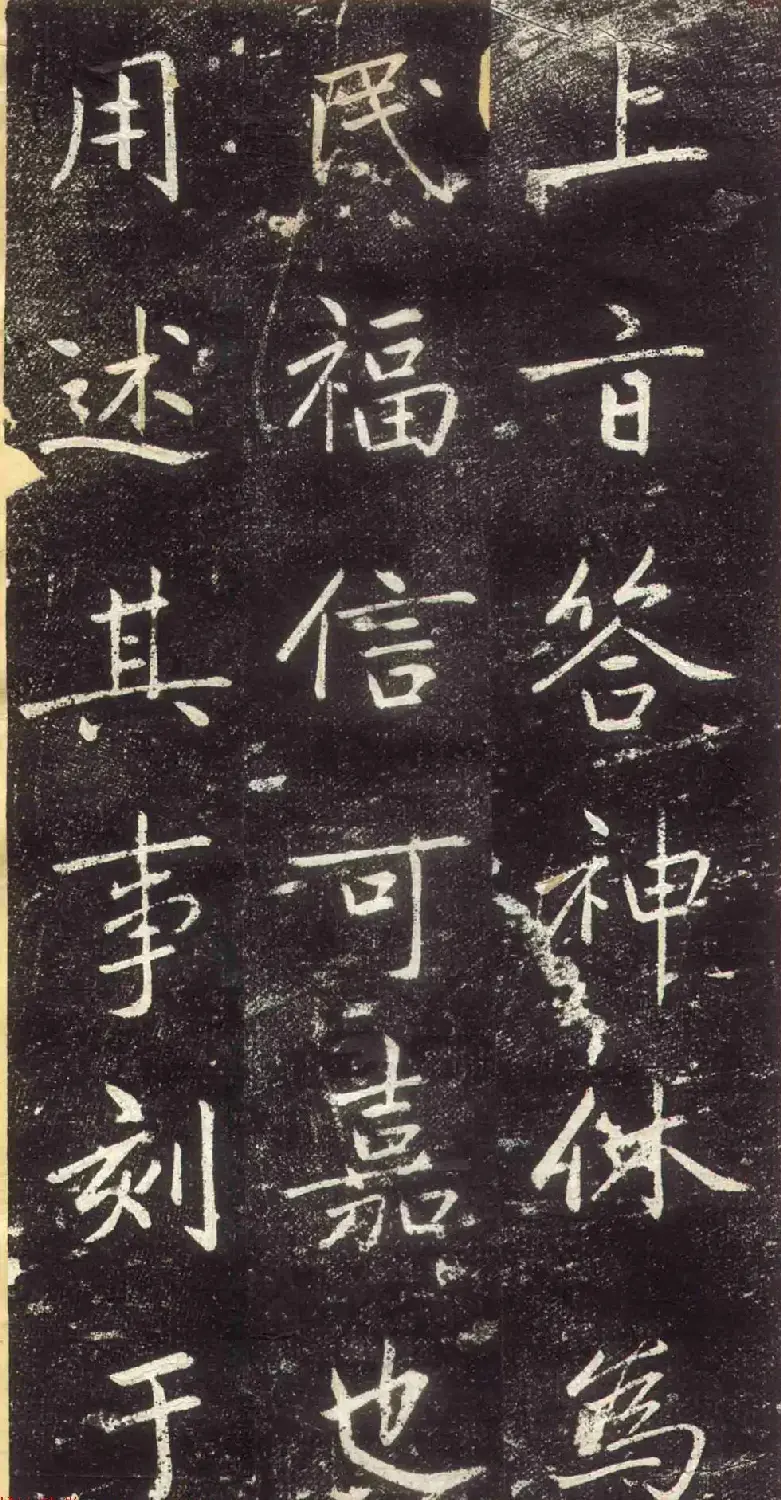 上旨答神休為
民福信可嘉也
用述其事刻于